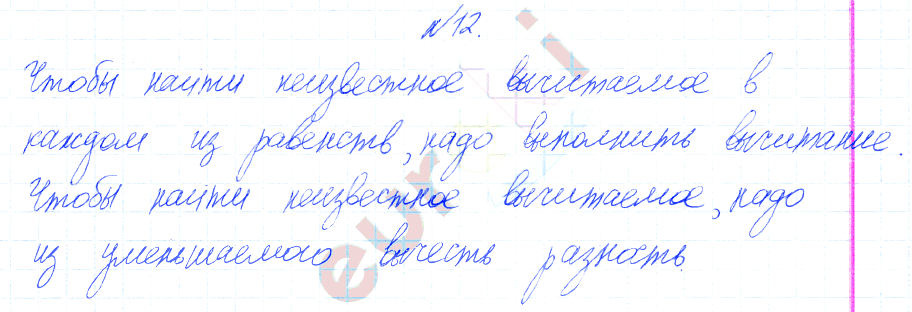 №12.
Чтобы найти неизвестное вычитаемое в
каждом из равенств, надо выполнить вычитание.
Чтобы найти неизвестное вычитаемое, надо
из уменьшаемого вычесть разность.
eurokі